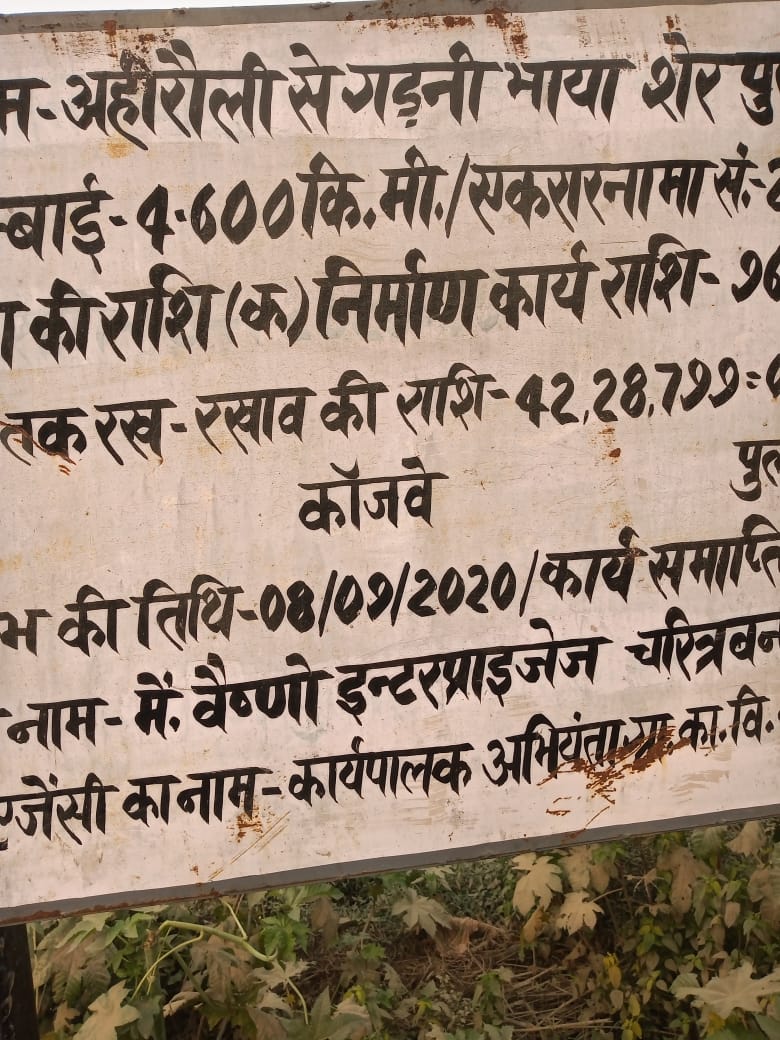 म-अहीरौली से गड़नी भाया शेर पु
बाई-4.600कि.मी./एकरारनामा सं.-
की राशि (क) निर्माण कार्य राशि-
तक रख-रखाव की राशि-42,28,799=
कॉजवे पुल
भ की तिथि-08/09/2020/कार्य समाप्ति
नाम-में. वैष्णो इन्टरप्राइजेज चरित्रवन
एजेंसी का नाम-कार्यपालक अभियंता ग्रा.का.वि.